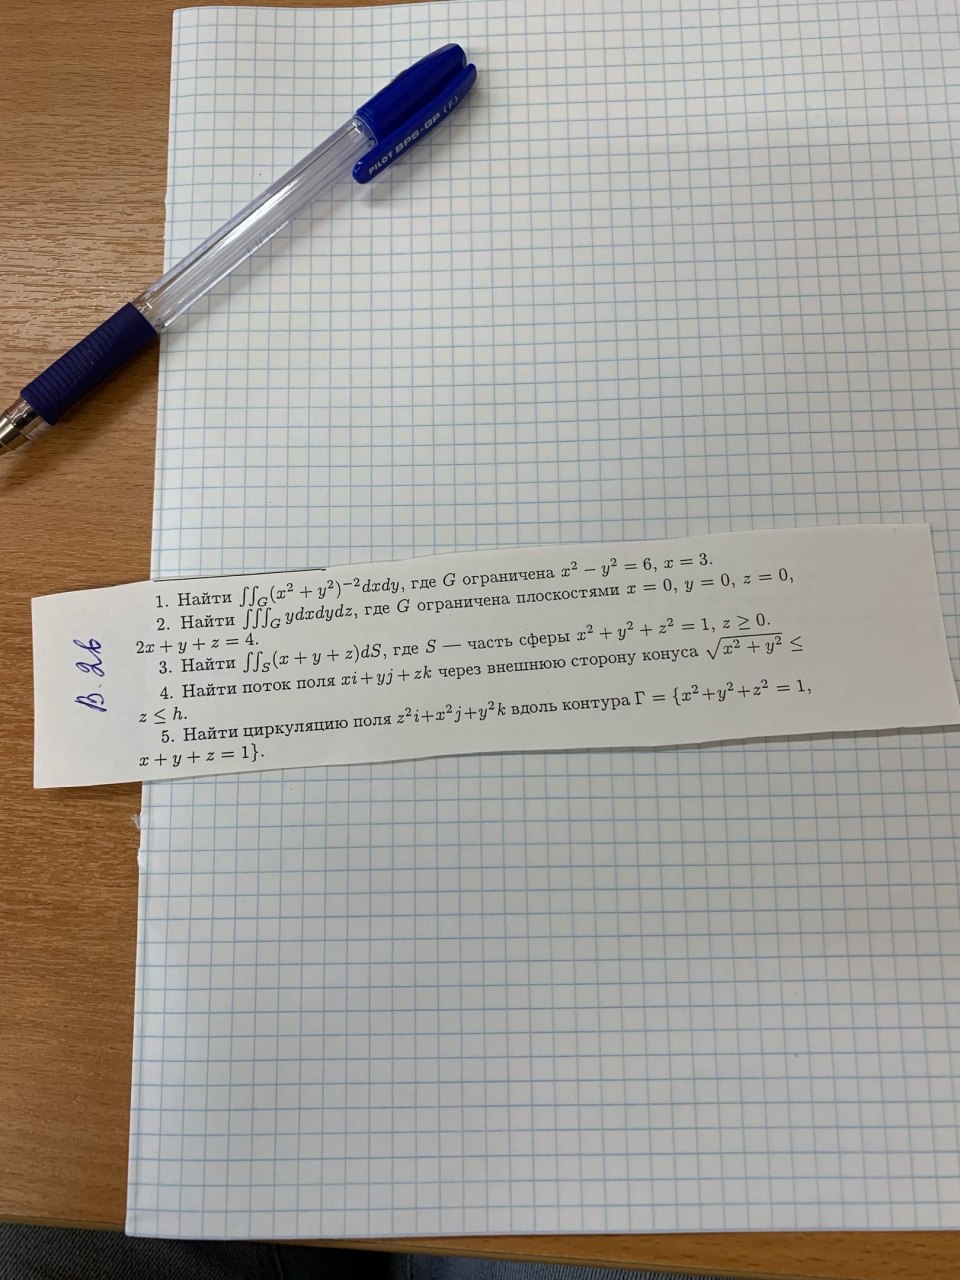 PILOT BPS-GP (F)
В. 26
1. Найти ∬_G(x² + y²)⁻²dxdy, где G ограничена x² − y² = 6, x = 3.
2. Найти ∭_G ydxdydz, где G ограничена плоскостями x = 0, y = 0, z = 0,
2x + y + z = 4.
3. Найти ∬_S(x + y + z)dS, где S — часть сферы x² + y² + z² = 1, z ≥ 0.
4. Найти поток поля xi + yj + zk через внешнюю сторону конуса √(x² + y²) ≤
z ≤ h.
5. Найти циркуляцию поля z²i+x²j+y²k вдоль контура Γ = {x²+y²+z² = 1,
x + y + z = 1}.